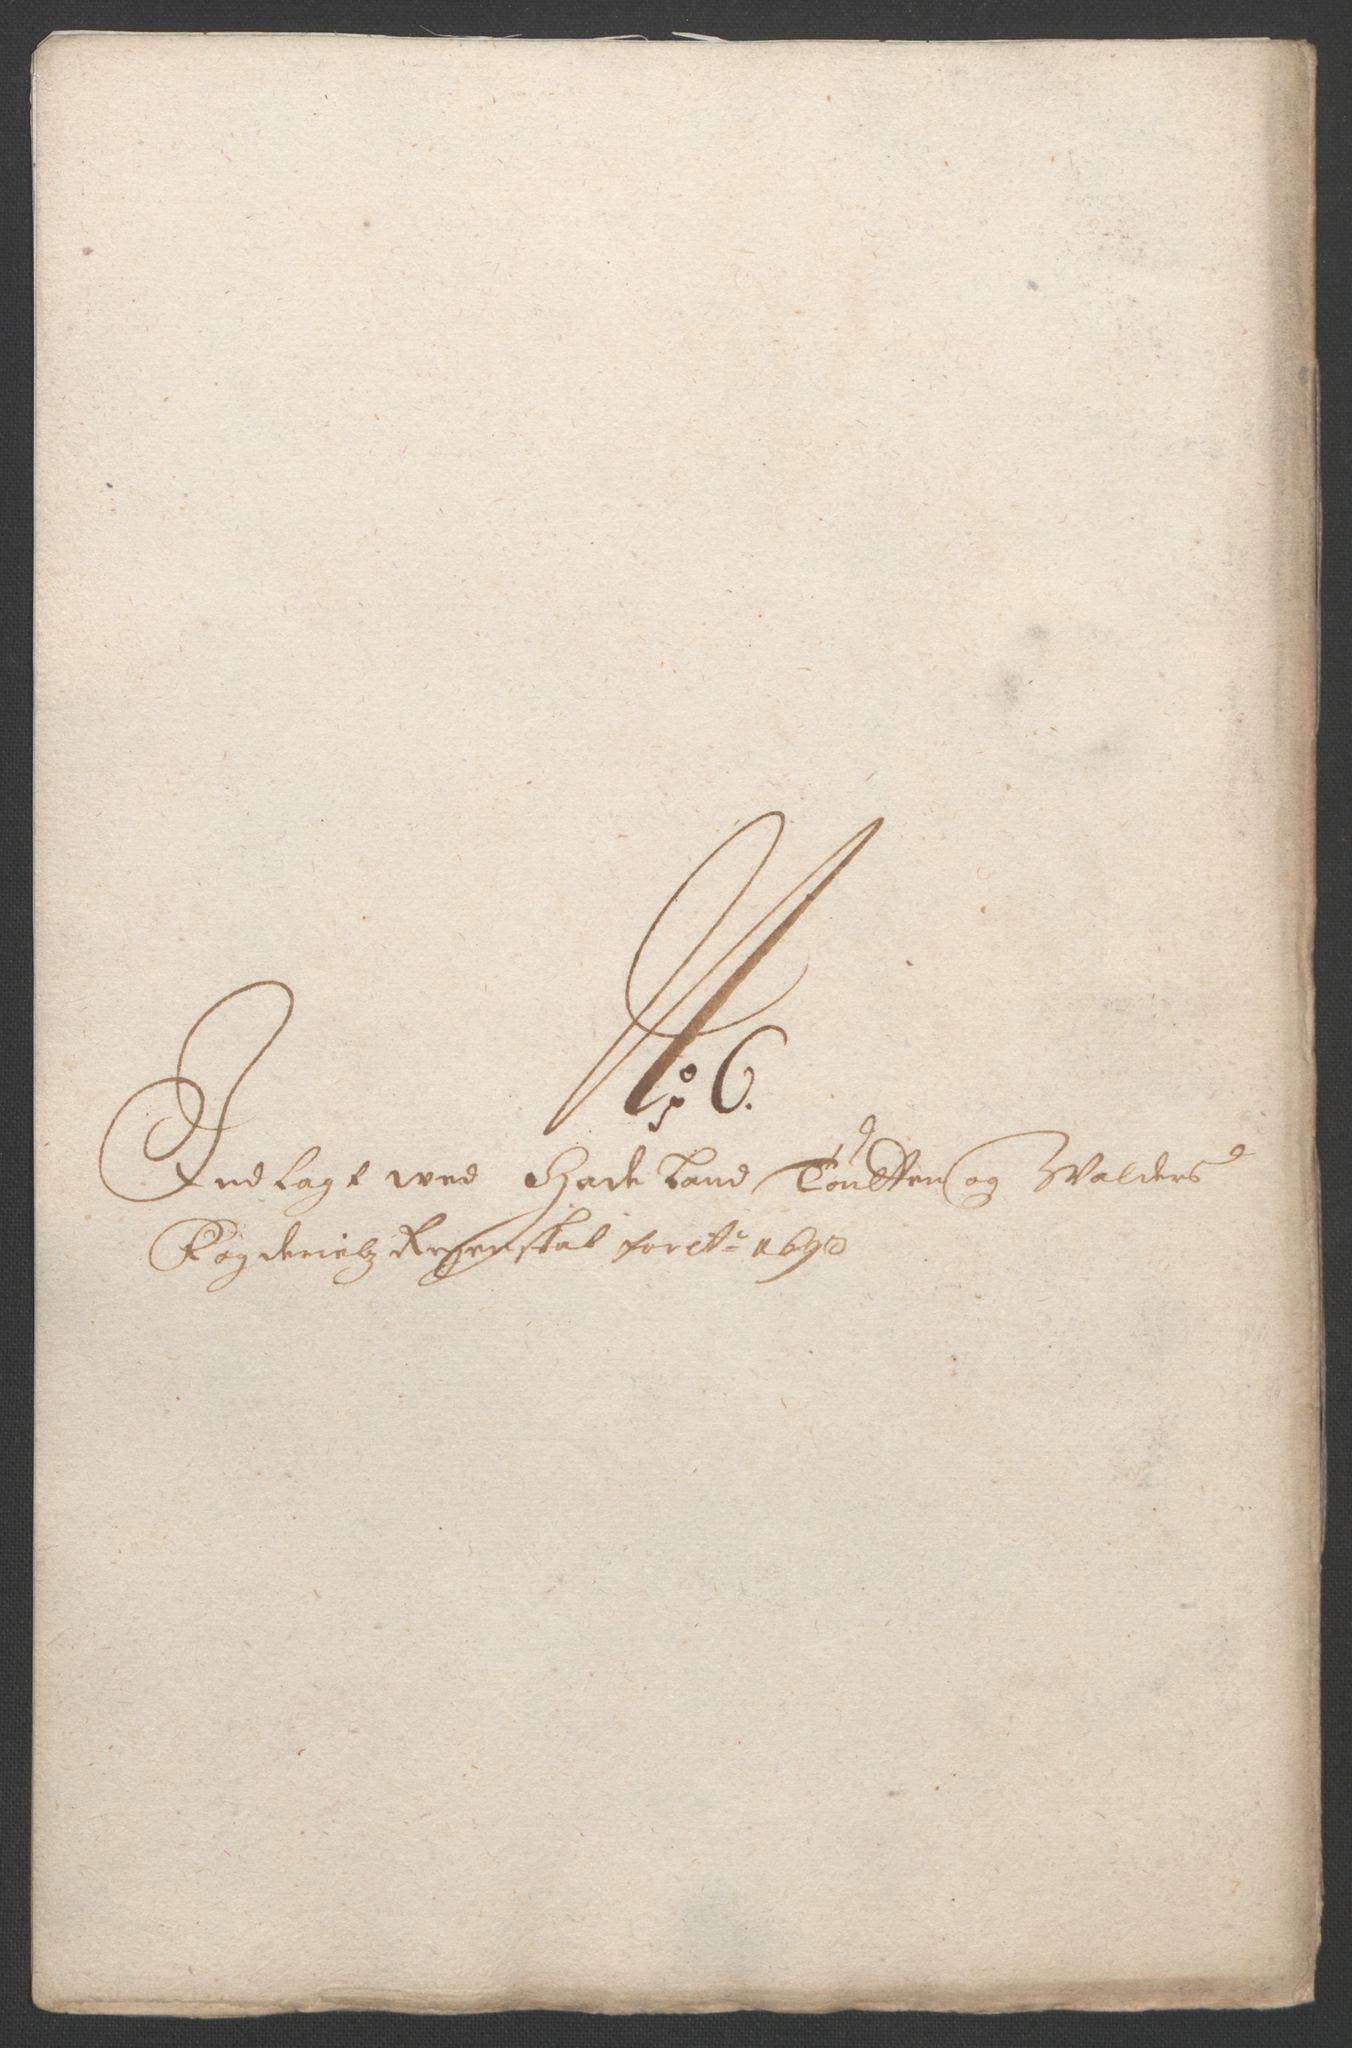 No 6.
Indlagt ved Hadeland Toudten og Walders
Fogderietz Regenskab for Ao 1690